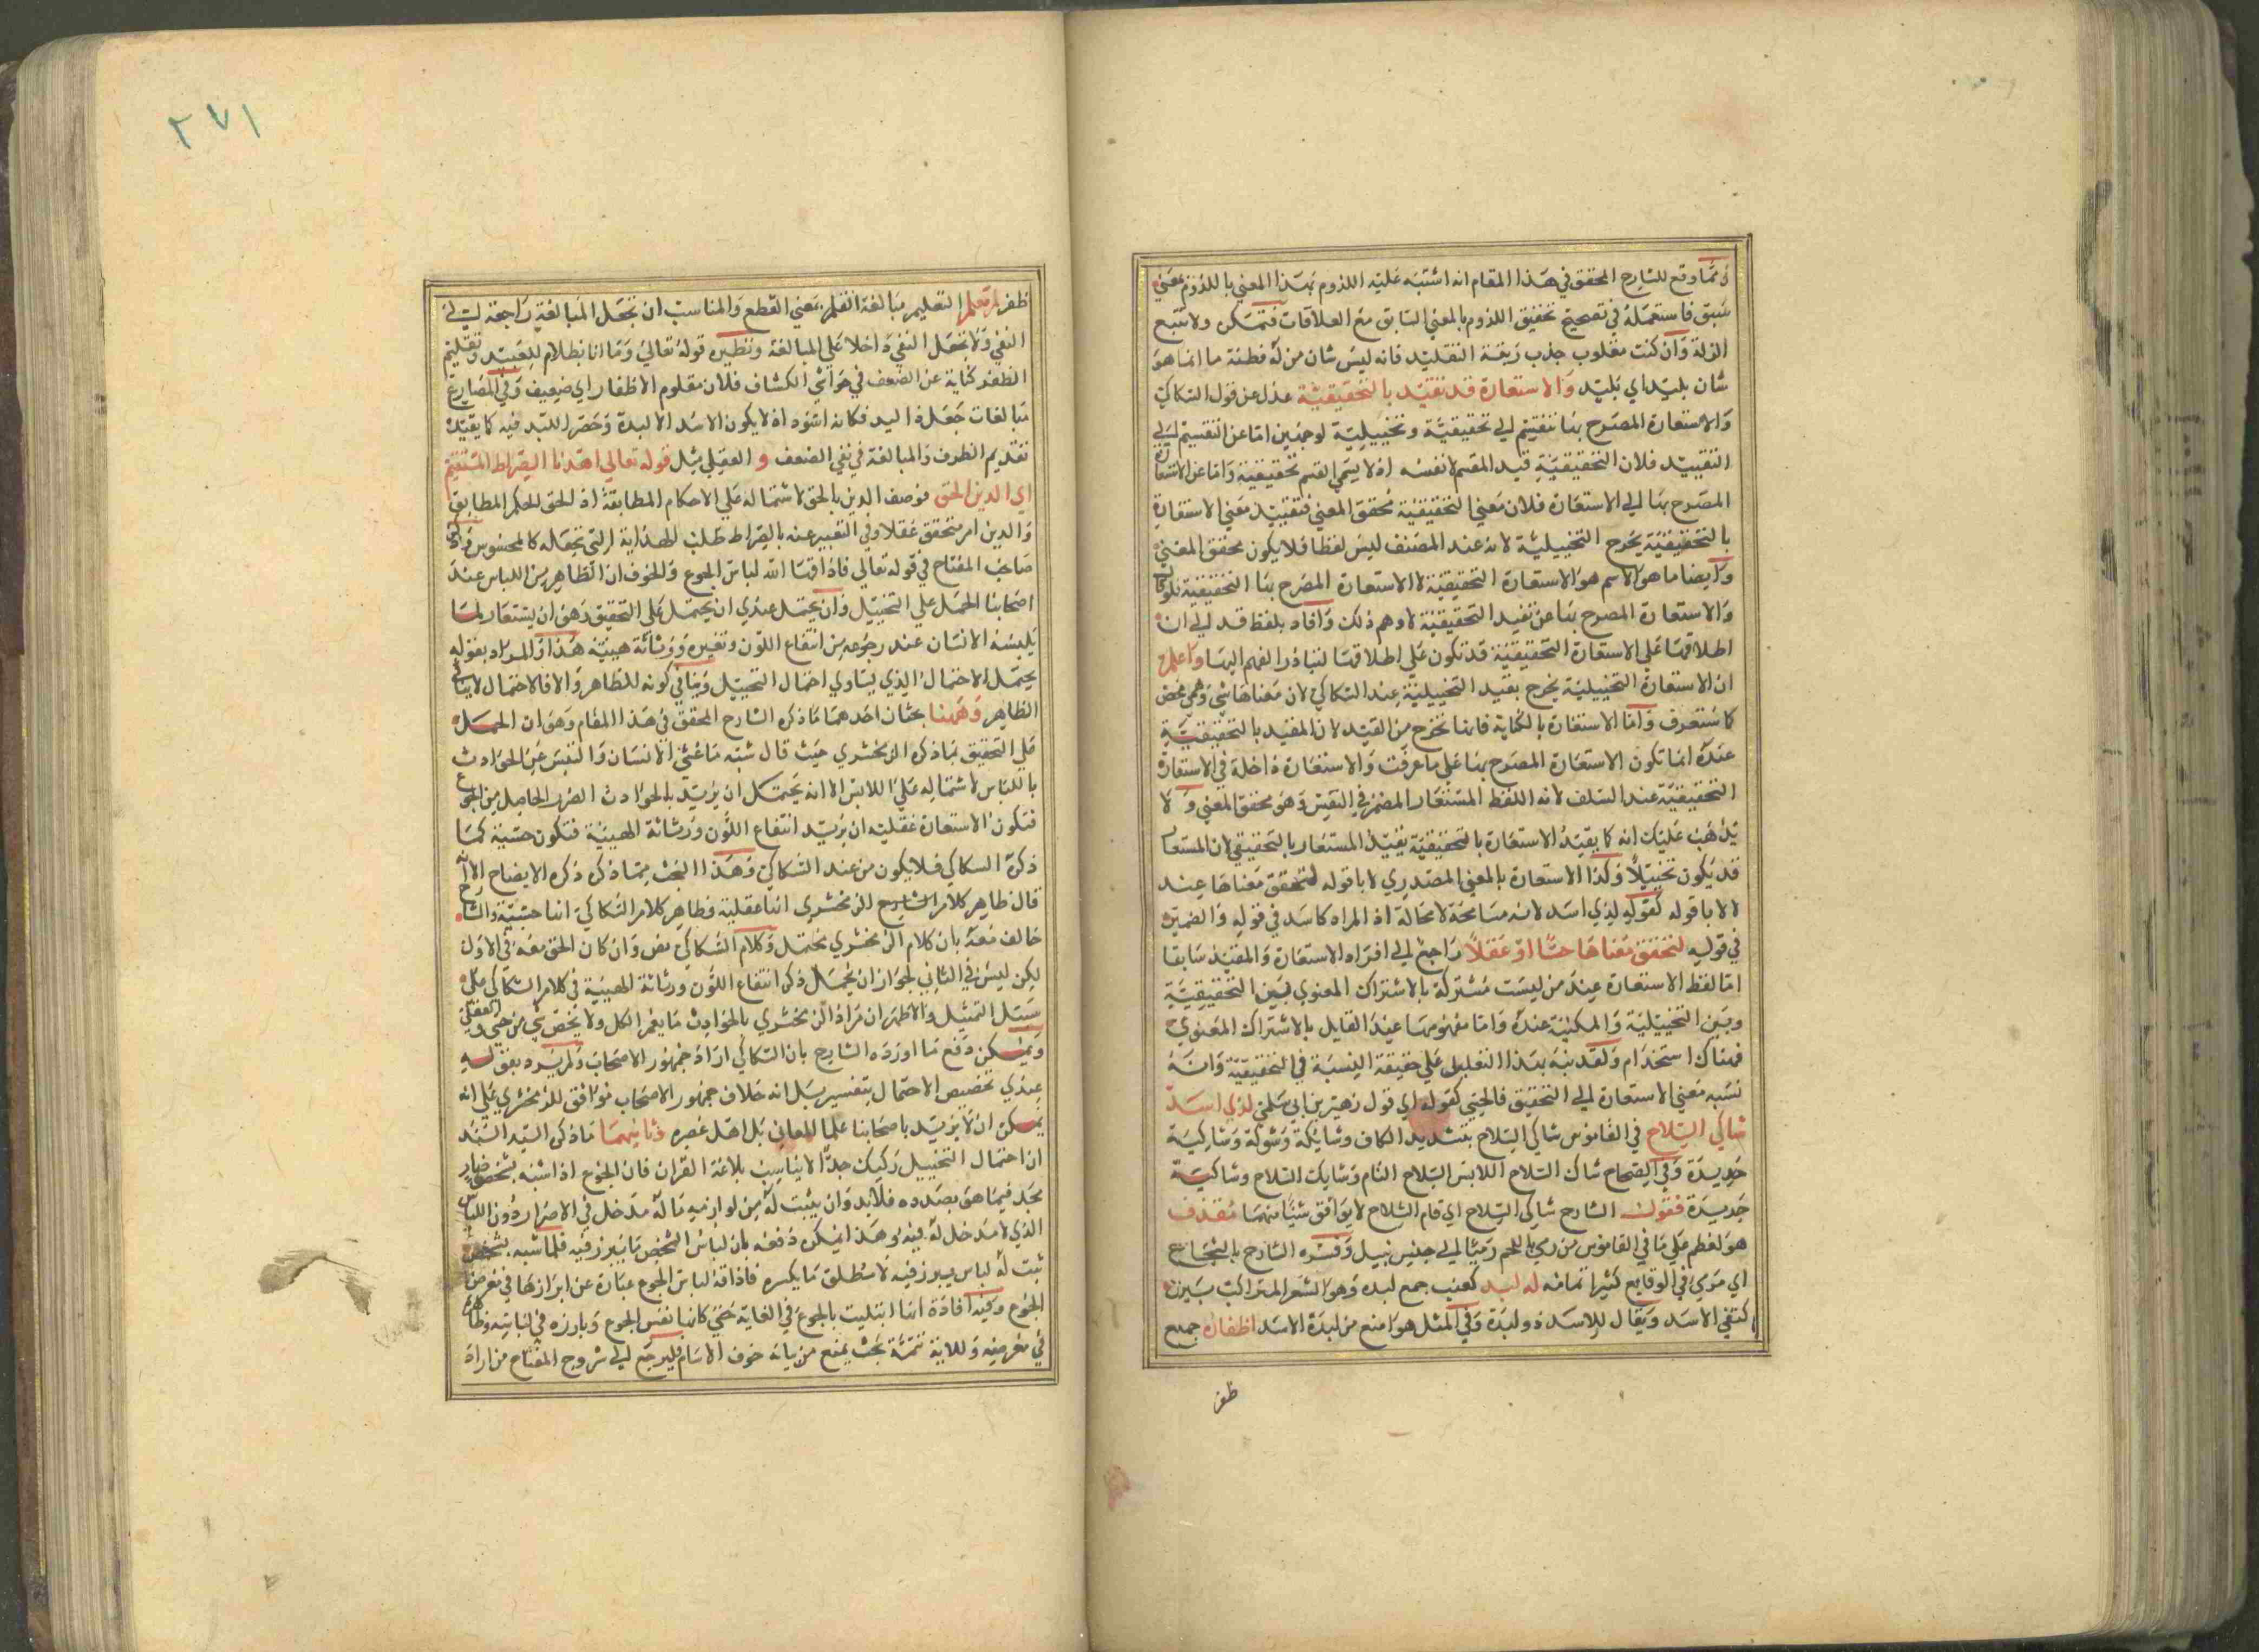 ومما وقع للشارح المحقق في هذا المقام انه اشتبه عليه اللزوم بهذا المعني باللزوم بمعني
سبق فاستعمله في تصحيح تحقيق اللزوم بالمعني السابق مع العلاقات فتمسكن ولا تتبع
الزلة وان كنت مغلوب جذب ربقة التقليد فانه ليس شان من له فطنة ما انما هو
شان بليد اي بليد والاستعارة قد تقيد بالتحقيقية عدل عن قول السكاكي
والاستعارة المصرح بها تنقسم الي تحقيقية وتخييلية لوجهين اما عن التقسيم الي
التقييد فلان التحقيقية قيد المقسم لا نفسه اذ لا يسمي القسم تحقيقية واما عن الاستعارة
المصرح بها الي الاستعارة فلان معني التحقيقية محقق المعني فتقييد معني الاستعارة
بالتحقيقية يخرج التخييلية لانه عند المصنف ليس لفظا فلا يكون محقق المعني
وايضا ما هو الاسم هو الاستعارة التحقيقية لا الاستعارة المصرح بها التحقيقية فلو قال
والاستعارة المصرح بها عن تقيد التحقيقية لاوهم ذلك وافاد بلفظ قد الي ان
اطلاقها علي الاستعارة التحقيقية قد تكون علي اطلاقها لتبادر الفهم اليها واعلم
ان الاستعارة التخييلية يخرج بقيد التحقيقية عند السكاكي لان معناها شي وهمي محض
كما ستعرف واما الاستعارة بالكناية فانها تخرج من القيد لان المقيد بالتحقيقية
عنده انما تكون الاستعارة المصرح بها علي ما عرفت والاستعارة داخلة في الاستعارة
التحقيقية عند السلف لانه اللفظ المستعار المضمر في النفس وهو محقق المعني ولا
يذهب عليك انه كما يقيد الاستعارة بالتحقيقية يقيد المستعار بالتحقيقي لان المستعار
قد يكون تخييلا وكذا الاستعارة بالمعني المصدري لا باقوله لتحقق معناها عند
لا لا باقوله كقوله لدي اسد لانه مسامحة لا محالة اذ المراد كاسد في قوله والضمير
في قوله لتحقق معناها حسا او عقلا راجع الي افراد الاستعارة والمقيد سابقا
اما لفظ الاستعارة عند من ليست مشتركة بالاشتراك المعنوي بين التحقيقية
وبين التخييلية والمكنية عنده واما مفهومها عند القايل بالاشتراك المعنوي
فهناك استخدام ولقد نبه بهذا التعليل علي حقيقة النسبة في التحقيقية وانه
نسبه معني الاستعارة الي التحقيق فالحسي كقوله اي قول زهير بن ابي سلمي لدي اسد
شاكي السلاح في القاموس شاكي السلاح بتشديد الكاف وشايكة وشوكه وشاكيه
حديده وفي الصحاح شاك السلاح اللابس السلاح التام وشايك السلاح وشاكيه
حديده فقول الشارح شاكي السلاح اي تام السلاح لا يوافق شيا منهما مقذف
هو لعظم علي ما في القاموس من رمي باللحم رميا الي جنس نبيل وفسره الشارح بالشجاع
اي مري في الوقايع كثيرا تمامه له لبد كعنب جمع لبده وهو الشعر المتراكب بين
كتفي الاسد ويقال للاسد ذو لبدة وفي المثل هو امنع من لبدة الاسد اظفاره جمع
ظفر
٢٧١
ظفر لم تقلم التقليم مبالغة القلم بمعني القطع والمناسب ان تجعل المبالغة راجعة الي
النفي ولا تجعل النفي داخلا علي المبالغة ونظيره قوله تعالي وما انا بظلام للعبيد وتقليم
الظفر كناية عن الضعف في حواشي الكشاف فلان مقلوم الاظفار اي ضعيف وفي المصارع
مبالغات جعله ذا لبد فكانه اسود اذ لا يكون الاسد الا لبدة وحصر اللبد فيه كما يفيده
تقديم الظرف والمبالغة في نفي الضعف والعقلي مثل قوله تعالي اهدنا الصراط المستقيم
اي الدين الحق فوصف الدين بالحق لاشتماله علي الاحكام المطابقة اذ الحق الحكم المطابق
والدين امر متحقق عقلا وفي التعبير عنه بالصراط طلب الهداية التي تجعله كالمحسوس وقال
صاحب المفتاح في قوله تعالي فاذاقها الله لباس الجوع والخوف ان الظاهر من اللباس عند
اصحابنا الحمل علي التخييل وان يحتمل عندي ان يحتمل علي التحقيق وهو ان يستعار لما
يلبسه الانسان عند رجوعه من انتقاع اللون وتغيره ورثاثة هيئة هذا والمراد بقوله
يحتمل الاحتمال الذي يساوي احتمال التخييل وينافي كونه للظاهر والا فالاحتمال لا ينافي
الظاهر وههنا بحثان احدهما ما ذكره الشارح المحقق في هذا المقام وهو ان الحمل
علي التحقيق مما ذكره الزمخشري حيث قال شبه ما غشي الانسان والتبس من الحوادث
باللباس لاشتماله علي اللابس الا انه يحتمل ان يريد بالحوادث الضرر الحاصل من الجوع
فتكون الاستعارة عقلية ان يريد انتقاع اللون ورثاثة الهيئة فتكون حسية كما
ذكره السكاكي فلا يكون من عند السكاكي وهذا البحث مما ذكره ذكره الايضاح الا انه
قال ظاهر كلام الشارح للزمخشري انها عقلية وظاهر كلام السكاكي انها حسية والشارح
خالف معه بان كلام الزمخشري محتمل وكلام السكاكي نص وان كان الحق معه في الاول
لكن ليس في الثاني لجواز ان يحمل ذكر انتقاع اللون ورثاثة الهيئة في كلام السكاكي علي
سبيل التمثيل والاظهر ان مراد الزمخشري بالحوادث ما يعم الكل ولا يخص بشي من حسي وعقلي
ويمكن دفع ما اورده الشارح بان السكاكي اراد جمهور الاصحاب ولم يرد بقوله
عندي تخصيص الاحتمال بتفسير بل انه خلاف جمهور الاصحاب موافق للزمخشري علي انه
يمكن ان لا يريد باصحابنا علما المعاني بل اهل عصره وثانيهما ما ذكره السيد السند
ان احتمال التخييل ركيك جدا لا يناسب بلاغة القران فان الجوع اذا شبه بشخص ضار
مجد فيما هو بصدده فلا بد وان يثبت له من لوازمه ما له مدخل في الاضرار دون اللباس
الذي لا مدخل له فيه وهذا يمكن دفعه بان لباس الشخص ما يبرز فيه فلما شبه بشخص
ثبت له لباس يبرز فيه لا مطلق ما يكسره فاذاقه لباس الجوع عبارة عن ابرازها في معرض
الجوع وفيه افادة انها ابتليت بالجوع في الغاية حتي كانها نفس الجوع وبارزه في لباسه وظاهرة
في معرضه وللاية تتمة بحث يمنع من بيانه خوف الاسام فليرجع الي شروح المفتاح من اراده